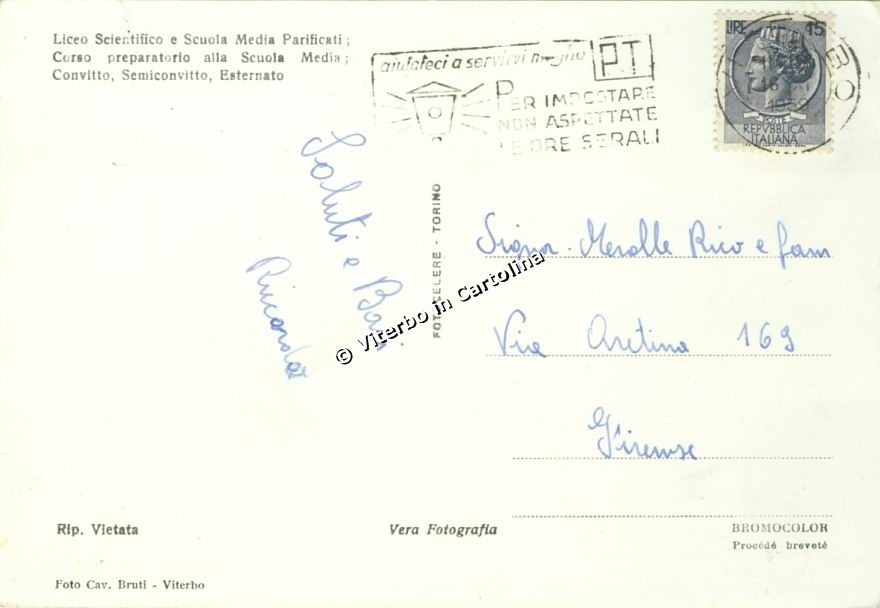 Liceo Scientifico e Scuola Media Parificati ;
Corso preparatorio alla Scuola Media ;
Convitto, Semiconvitto, Esternato
aiutateci a servirvi meglio
P.T.
PER IMPOSTARE
NON ASPETTATE
LE ORE SERALI
LIRE 15
POSTE
REPVBBLICA
ITALIANA
1959
Saluti e Baci
Riccardo
FOTOCELERE - TORINO
© Viterbo in Cartolina
Signor. Meralle Rico e fam
Via Aretina 169
Firenze
Rip. Vietata
Vera Fotografia
BROMOCOLOR
Procédé breveté
Foto Cav. Bruti - Viterbo